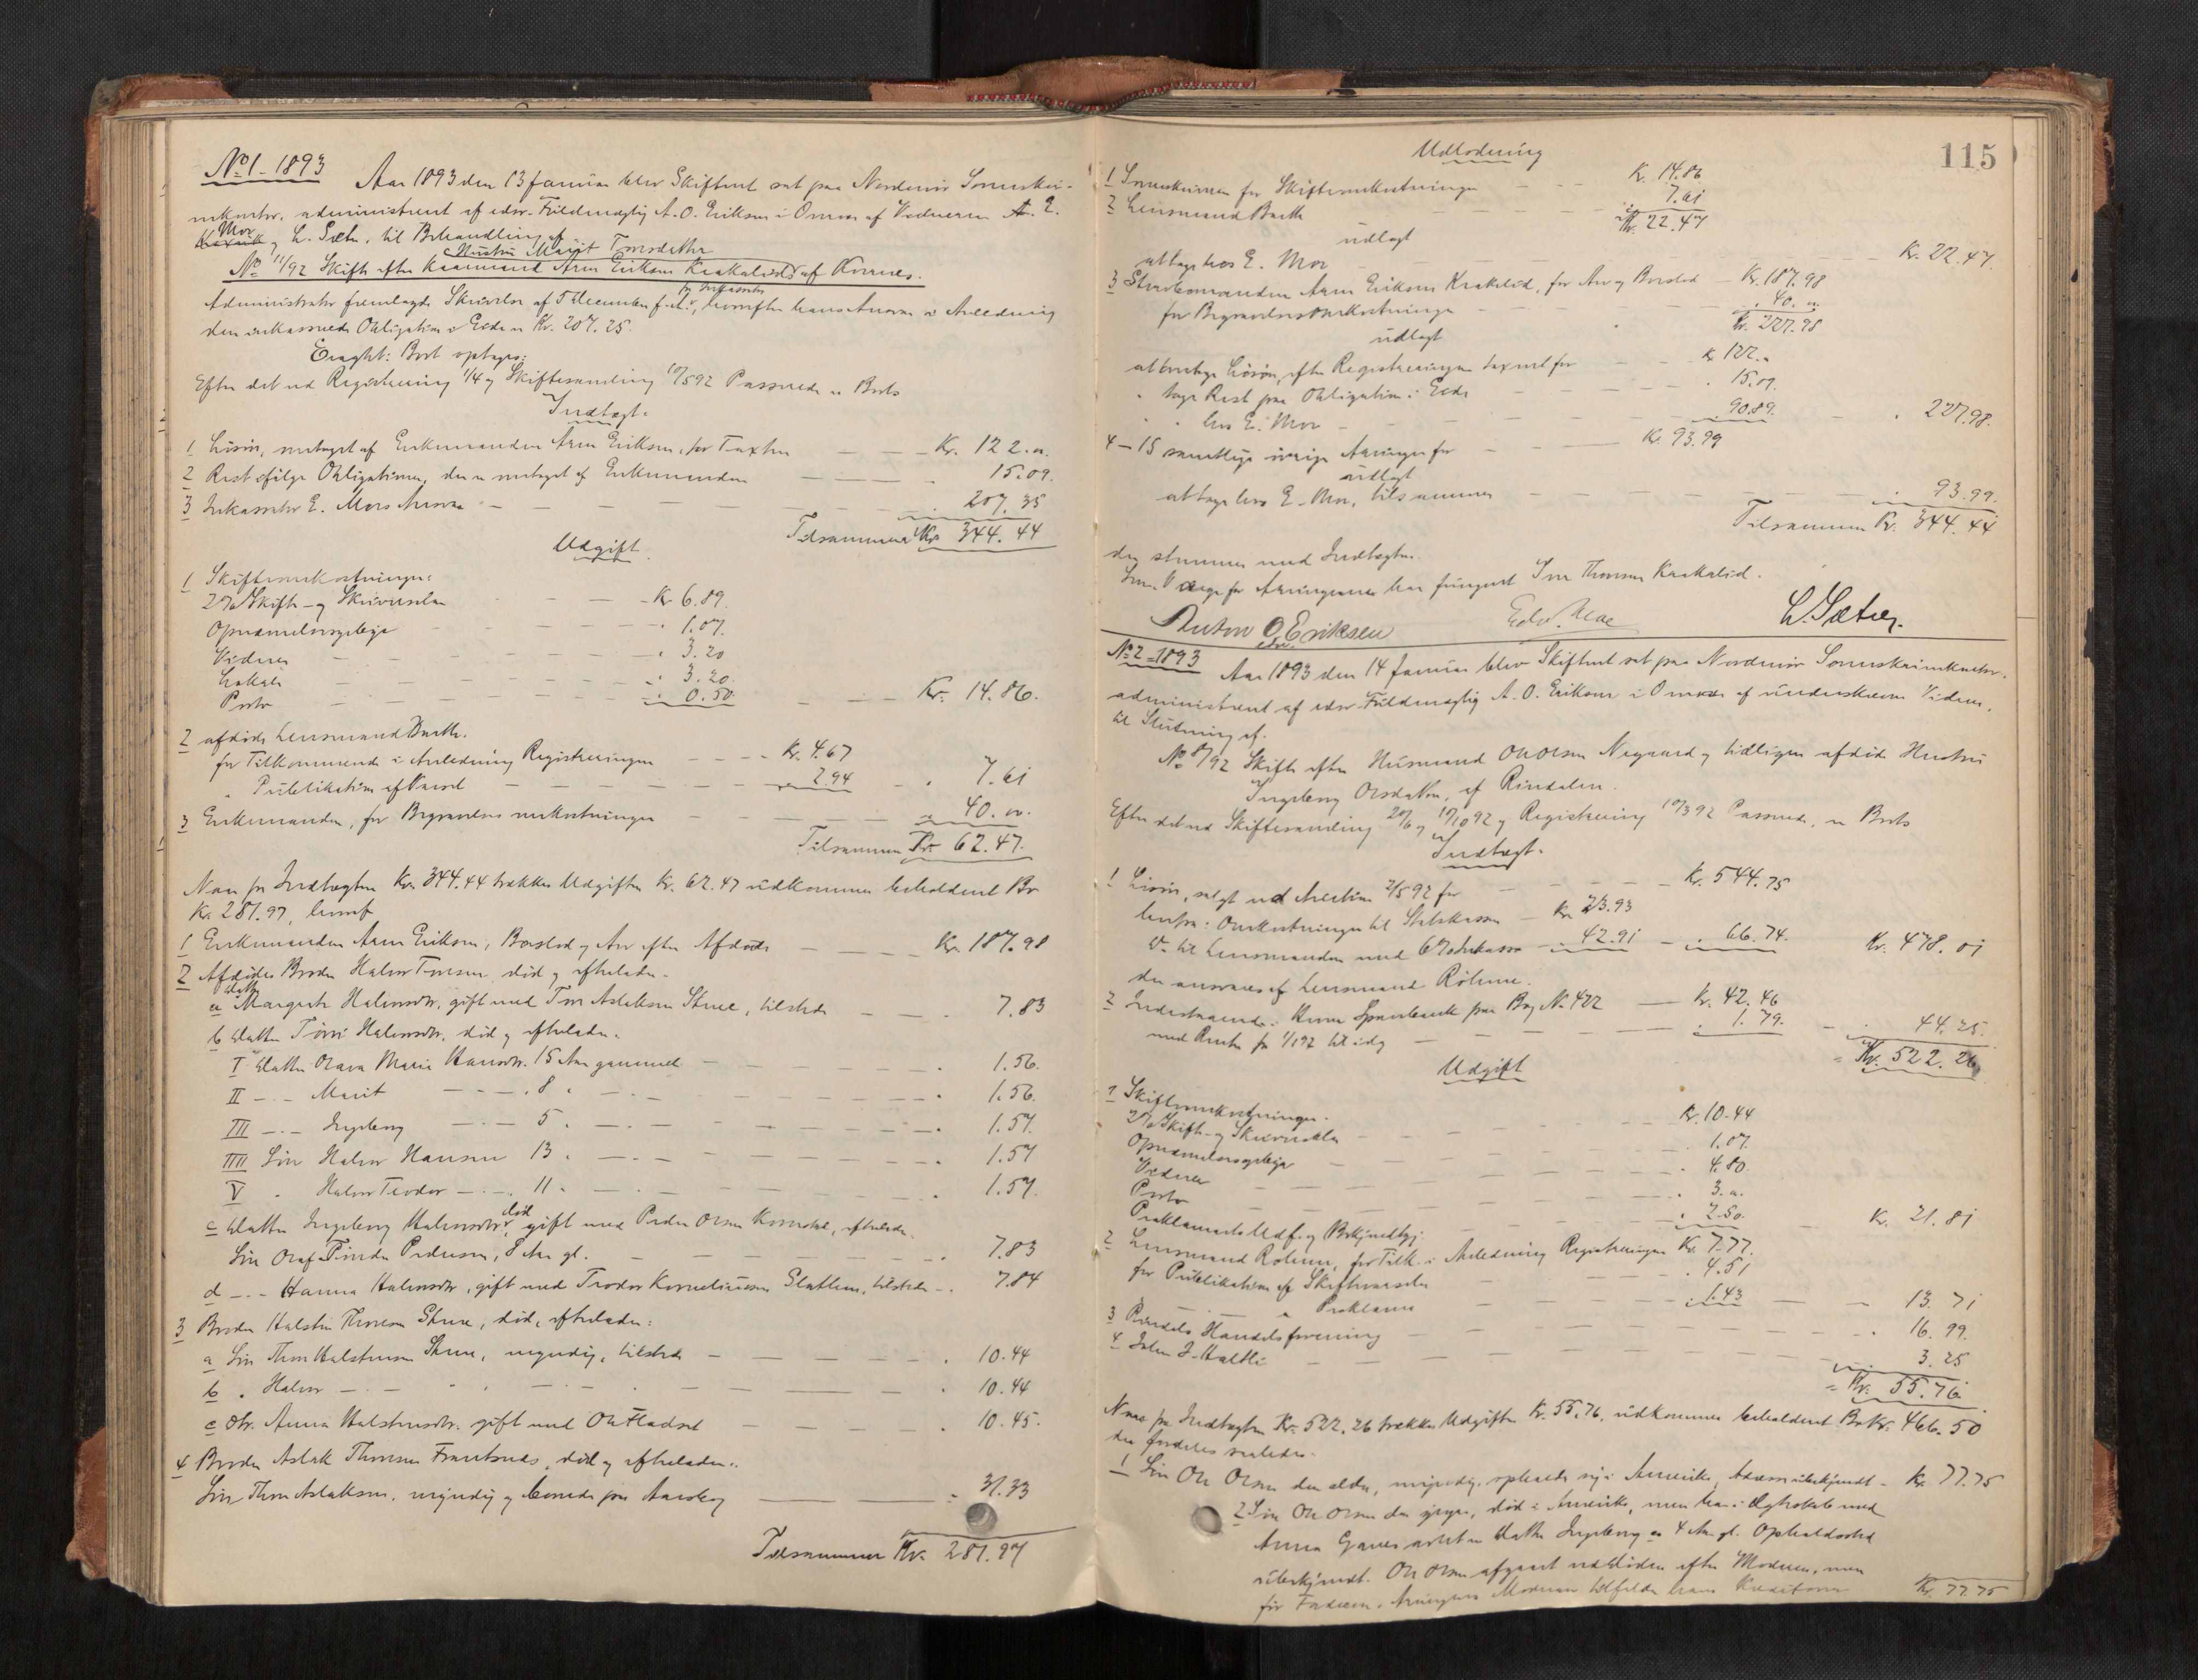 No 1 - 1893 Aar 1893 den 13 Januar blev Skifteret sat paa Nordmør Sorenskri-
verkontor, administreret af edsv. Fuldmægtig A. O. Eriksen i Overvær af Vidnerne A. E.
Mor og L. Sæter, til Behandling af
Hustru Marit Toresdatter
No 11/92 Skifte efter Kaarmand Arne Eriksen Kraakalids af Kvernes.
Administrator fremlagde Skrivelse af 5 December f. A. fra Inkassator, hvorefter hans Ansvar i Anledning
den inkasserede Obligation i Eide er Kr. 207.25.
Eragtet: Bort optages:
Efter det ved Registrering 1/4 og Skiftesamling 10/5 92 Passerede er Boets
Indtægt.
1 Løsøre, modtaget af Enkemanden Arne Eriksen, for Taxten Kr. 122. "
2 Rest ifølge Obligationen, den er modtaget af Enkemanden 15.09.
3 Inkassator E. Mors Ansvar 207.35
Tilsammen Kr. 344.44
Udgift
1 Skifteomkostninger:
2 % Skifte- og Skriverselær Kr 6.89.
Opnævnelsesgebyr 1.07.
Vidner 3.20
Lokale 3.20.
Porto 0.50 Kr. 14.86.
2 afdøde Lensmand Barth.
for Tilkommende i Anledning Registreringen Kr. 4.67
" Publikation af Varsel 2.94 7.61
3 Enkemanden, for Begravelsesomkostninger 40. "
Tilsammen Kr. 62.47.
Naar fra Indtægten Kr. 344.44 trækkes Udgiften Kr. 62.47 udkommer beholdent Bo
Kr. 281.97, hvoraf
1 Enkemanden Arne Eriksen, Boslod og Arv efter Afdøde Kr. 187.98
2 Afdødes Broder Halvor Toresen, død og efterlader.
a Datter Margrete Halvorsdtr, gift med Tore Aslaksen Skrue, tilstede 7.83
b Datter Halvorsdtr, død og efterlader.
I Datter Olava Maria Hansdtr. 15 Aar gammel 1.56.
II - " - Marit - 8 " 1.56.
III - " - Ingeborg - 5 " 1.57.
IIII Søn Halvor Hansen 13 " 1.57
V " Halvor Teodor - 11 " 1.57.
c Datter Ingeborg Halvorsdtr, død, gift med Peder Olsen, efterlader
Søn Olaf Pedersen, 8 Aar gl. 7.83
d - " - Hanna Halvorsdtr, gift med Teodor Korneliussen, tilstede 7.84
3 Broder Halsten Thoresen Skrue, død, efterlader:
a Søn Thore Halstensen Skrue, myndig, tilstede 10.44
b " Halvor - " - 10.44
c Dtr. Anna Halstensdtr. gift med Ole Fladset 10.45.
4 Broder Aslak Thoresen, død og efterlader.
Søn Thore Aslaksen, myndig og boende paa 31.33
Tilsammen Kr. 281.97
115
Udlodning
1 Sorenskriveren for Skifteomkostninger Kr. 14.86
2 Lensmand Barth 7.61
Kr. 22.47
udlagt
at tage hos E. Mor Kr. 22.47.
3 Sterbomanden Arne Eriksen Kraakalid, for Arv og Boslod Kr. 187.98
for Begravelsesomkostninger 40. "
Kr. 227.98
udlagt
at beholde Løsøre, efter Registreringen taxeret for Kr 122. "
" tage Rest paa Obligation i Eide 15.09.
" " hos E. Mor 90.89. 227.98.
4-15 samtlige øvrige Arvinger for Kr. 93.99
udlagt
at tage hos E. Mor, tilsammen 93.99.
Tilsammen Kr. 344.44
der stemmer med Indtægten.
Som Værge for Arvingerne har fungeret Iver Thoresen Kraakalid.
Anton O. Eriksen Edv. Moe L. Sæter.
edsv.
No 2 - 1893 Aar 1893 den 14 Januar blev Skifteret sat paa Nordmør Sorenskriverkontor,
administreret af edsv. Fuldmægtig A. O. Eriksen i Overvær af underskrevne Vidner,
til Slutning af.
No 8/92 Skifte efter Husmand Ole Olsen Nergaard og tidligere afdøde Hustru
Ingeborg Olsdatter, af Rindalen.
Efter det ved Skiftesamling 20/6 og 19/10 92 og Registrering 10/3 92 Passerede, er Boets
Indtægt.
1 Løsøre, solgt ved Auktion 2/5 92 for Kr. 544.75
herfra: Omkostninger til Statskassen Kr 23.93
Do til Lensmanden med 6 % Inkasso 42.91 66.74. Kr. 478.01
der ansvares af Lensmand Röhme.
2 Indestaaende i Sparebank paa Bog No 422 Kr. 42.46
med Renter fra 1/1 92 til idag 1.79. 44.25.
Kr. 522.26
Udgift
1 Skifteomkostninger.
2 % Skifte- og Skriverselær Kr. 10.44
Opnævnelsesgebyr 1.07.
Vidner 4.80.
Porto 3. "
Proklamaets Udf. og Bekjendtgj. 2.50. Kr. 21.81
2 Lensmand Röhme, for Tilk. i Anledning Registreringen Kr. 7.77.
for Publikation af Skiftevarsler 4.51
" Proklama 1.43 13.71
3 Handelsforening 16.99.
4 John J. Haltli 3.25
Kr. 55.76
Naar fra Indtægten Kr. 522.26 trækkes Udgiften Kr. 55.76, udkommer beholdent Bo Kr. 466.50
der fordeles saaledes.
1 Søn Ole Olsen den ældre, myndig, opholder sig i Amerika, Adresse ubekjendt Kr. 77.75
2 Søn Ole Olsen den yngre, død i Amerika, men har i Ægteskab med
Anna Datter Ingeborg 4 Aar gl. Opholdssted
ubekjendt. Ole Olsen afgaaet ved Døden efter Moderen, men
før Faderen. Arven efter Moderen tilfalder hans Kreditorer Kr. 77.75